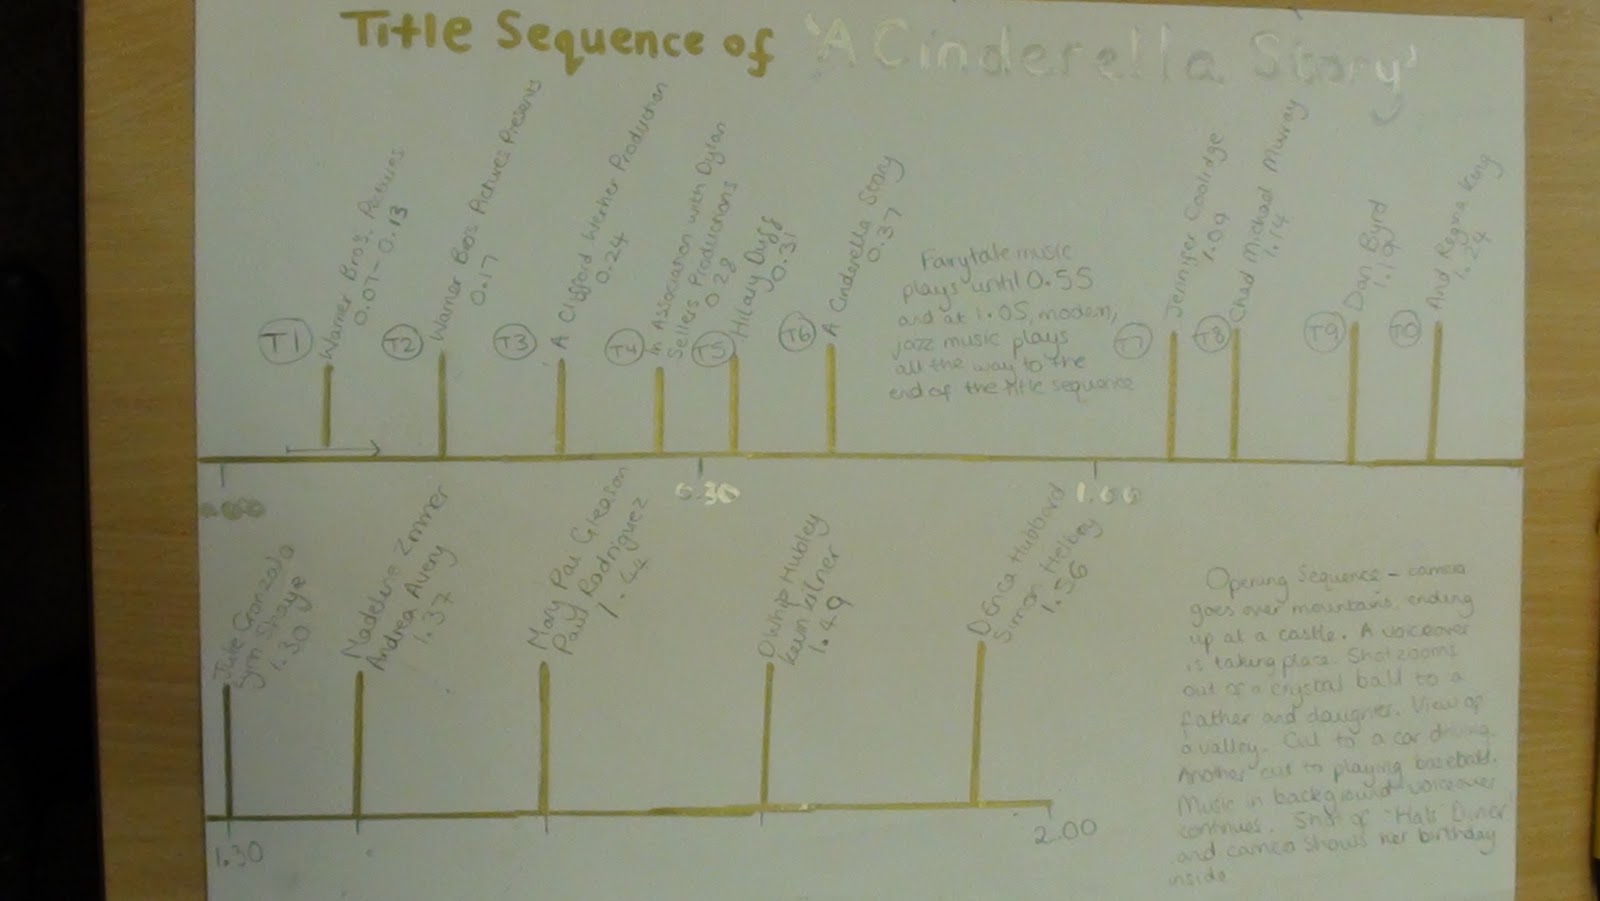 Title Sequence of 'A Cinderella Story'
T1
Warner Bros. Pictures
0.07 - 0.13
T2
Warner Bros Pictures Presents
0.17
T3
A Clifford Werber Production
0.24
T4
In Association with Dylan
Sellers Productions
0.28
T5
Hilary Duff
0.31
T6
A Cinderella Story
0.37
Fairytale music
plays until 0.55
and at 1.05, modern,
jazz music plays
all the way to the
end of the title sequence
T7
Jennifer Coolidge
1.09
T8
Chad Michael Murray
1.14
T9
Dan Byrd
1.19
T10
And Regina King
1.24
0.00
0.30
1.00
Julie Gonzalo
Lynn Shaye
1.30
Madeline Zmmer
Andrea Avery
1.37
Mary Pat Gleason
Paul Rodriguez
1.44
Whip Hubley
Kevin Kilner
1.49
Erica Hubbard
Simon Helberg
1.56
1.30
2.00
Opening Sequence - camera
goes over mountains, ending
up at a castle. A voiceover
is taking place. Shot zooms
out of a crystal ball to a
father and daughter. View of
a valley. Cut to a car driving.
Another cut to playing baseball.
Music in background voiceover
continues. Shot of 'Hals Diner'
and camera shows her birthday
inside